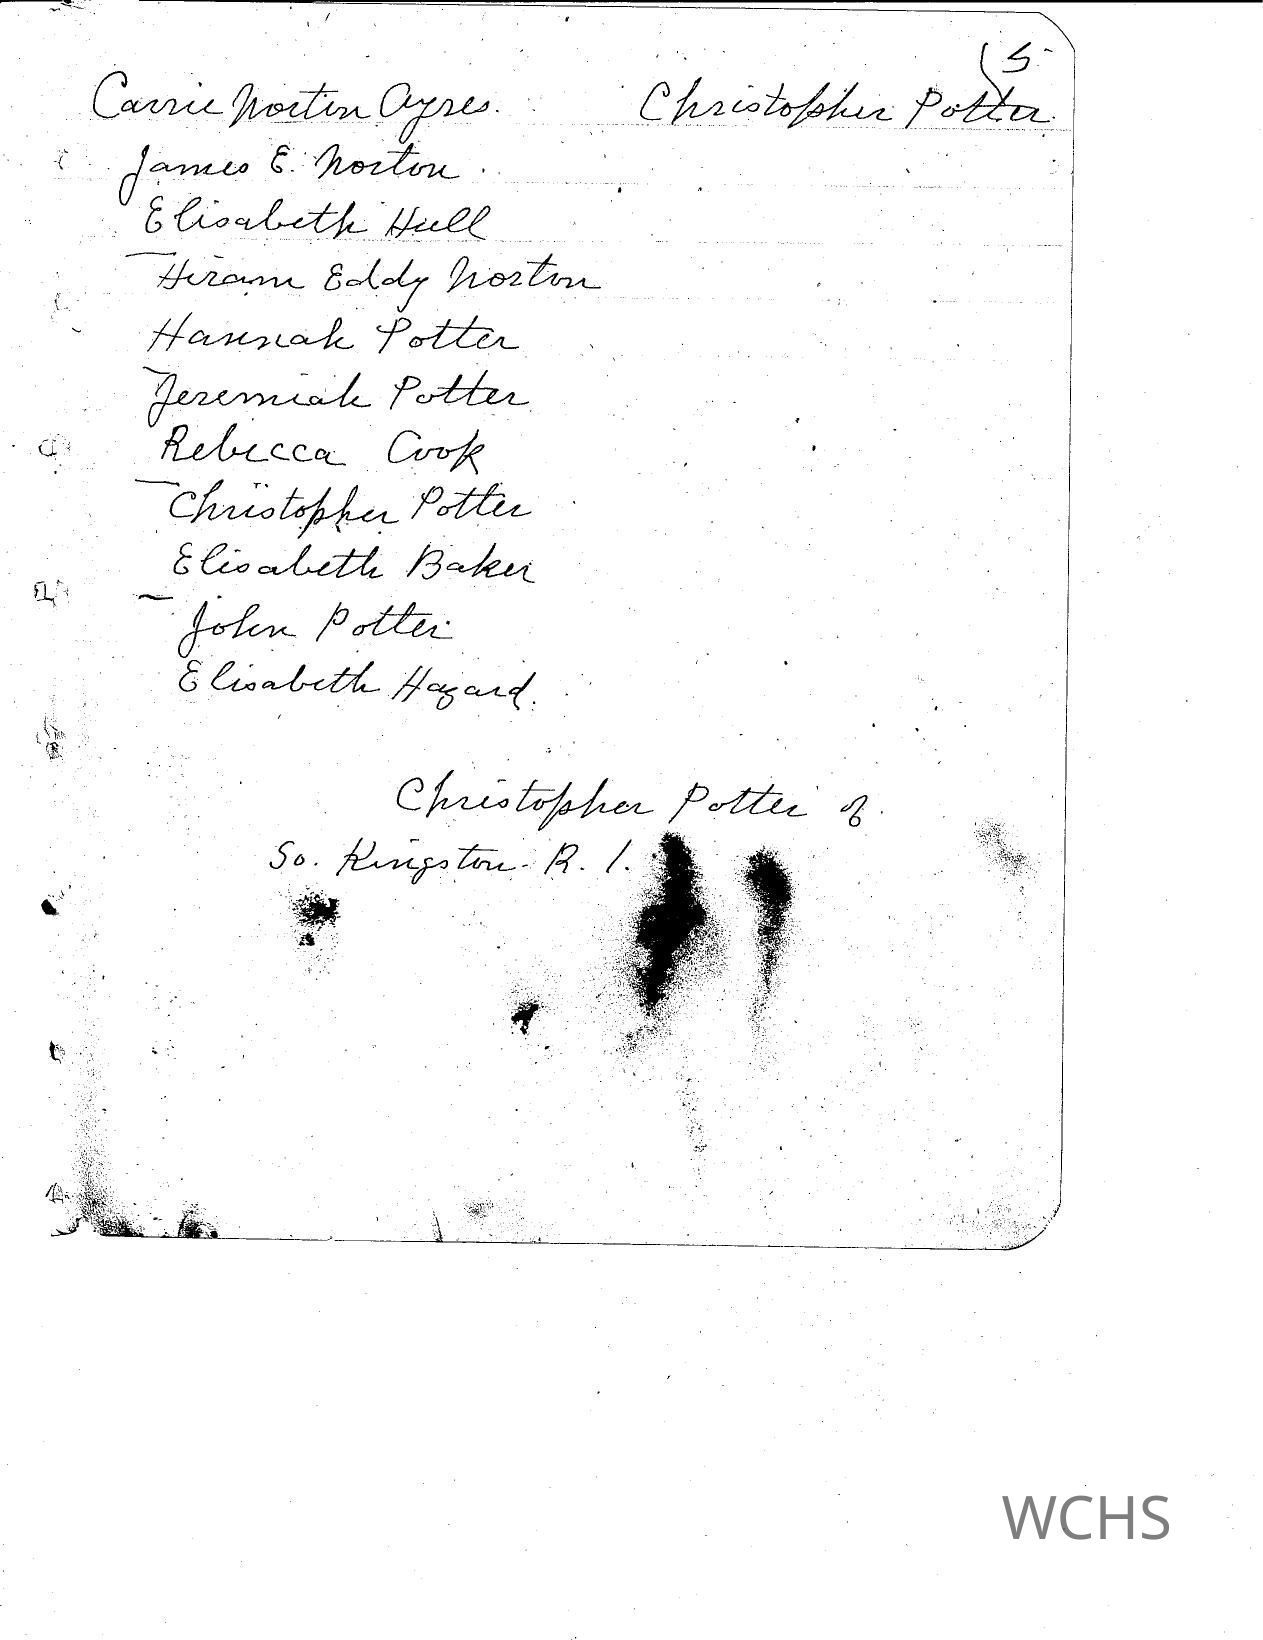 5
Carrie Norton Ayres. Christopher Potter
James E. Norton.
Elisabeth Hull
Hiram Eddy Norton
Hannah Potter
Jeremiah Potter
Rebecca Cook
Christopher Potter
Elisabeth Baker
John Potter
Elisabeth Hazard.
Christopher Potter of
So. Kingston R. I.
WCHS